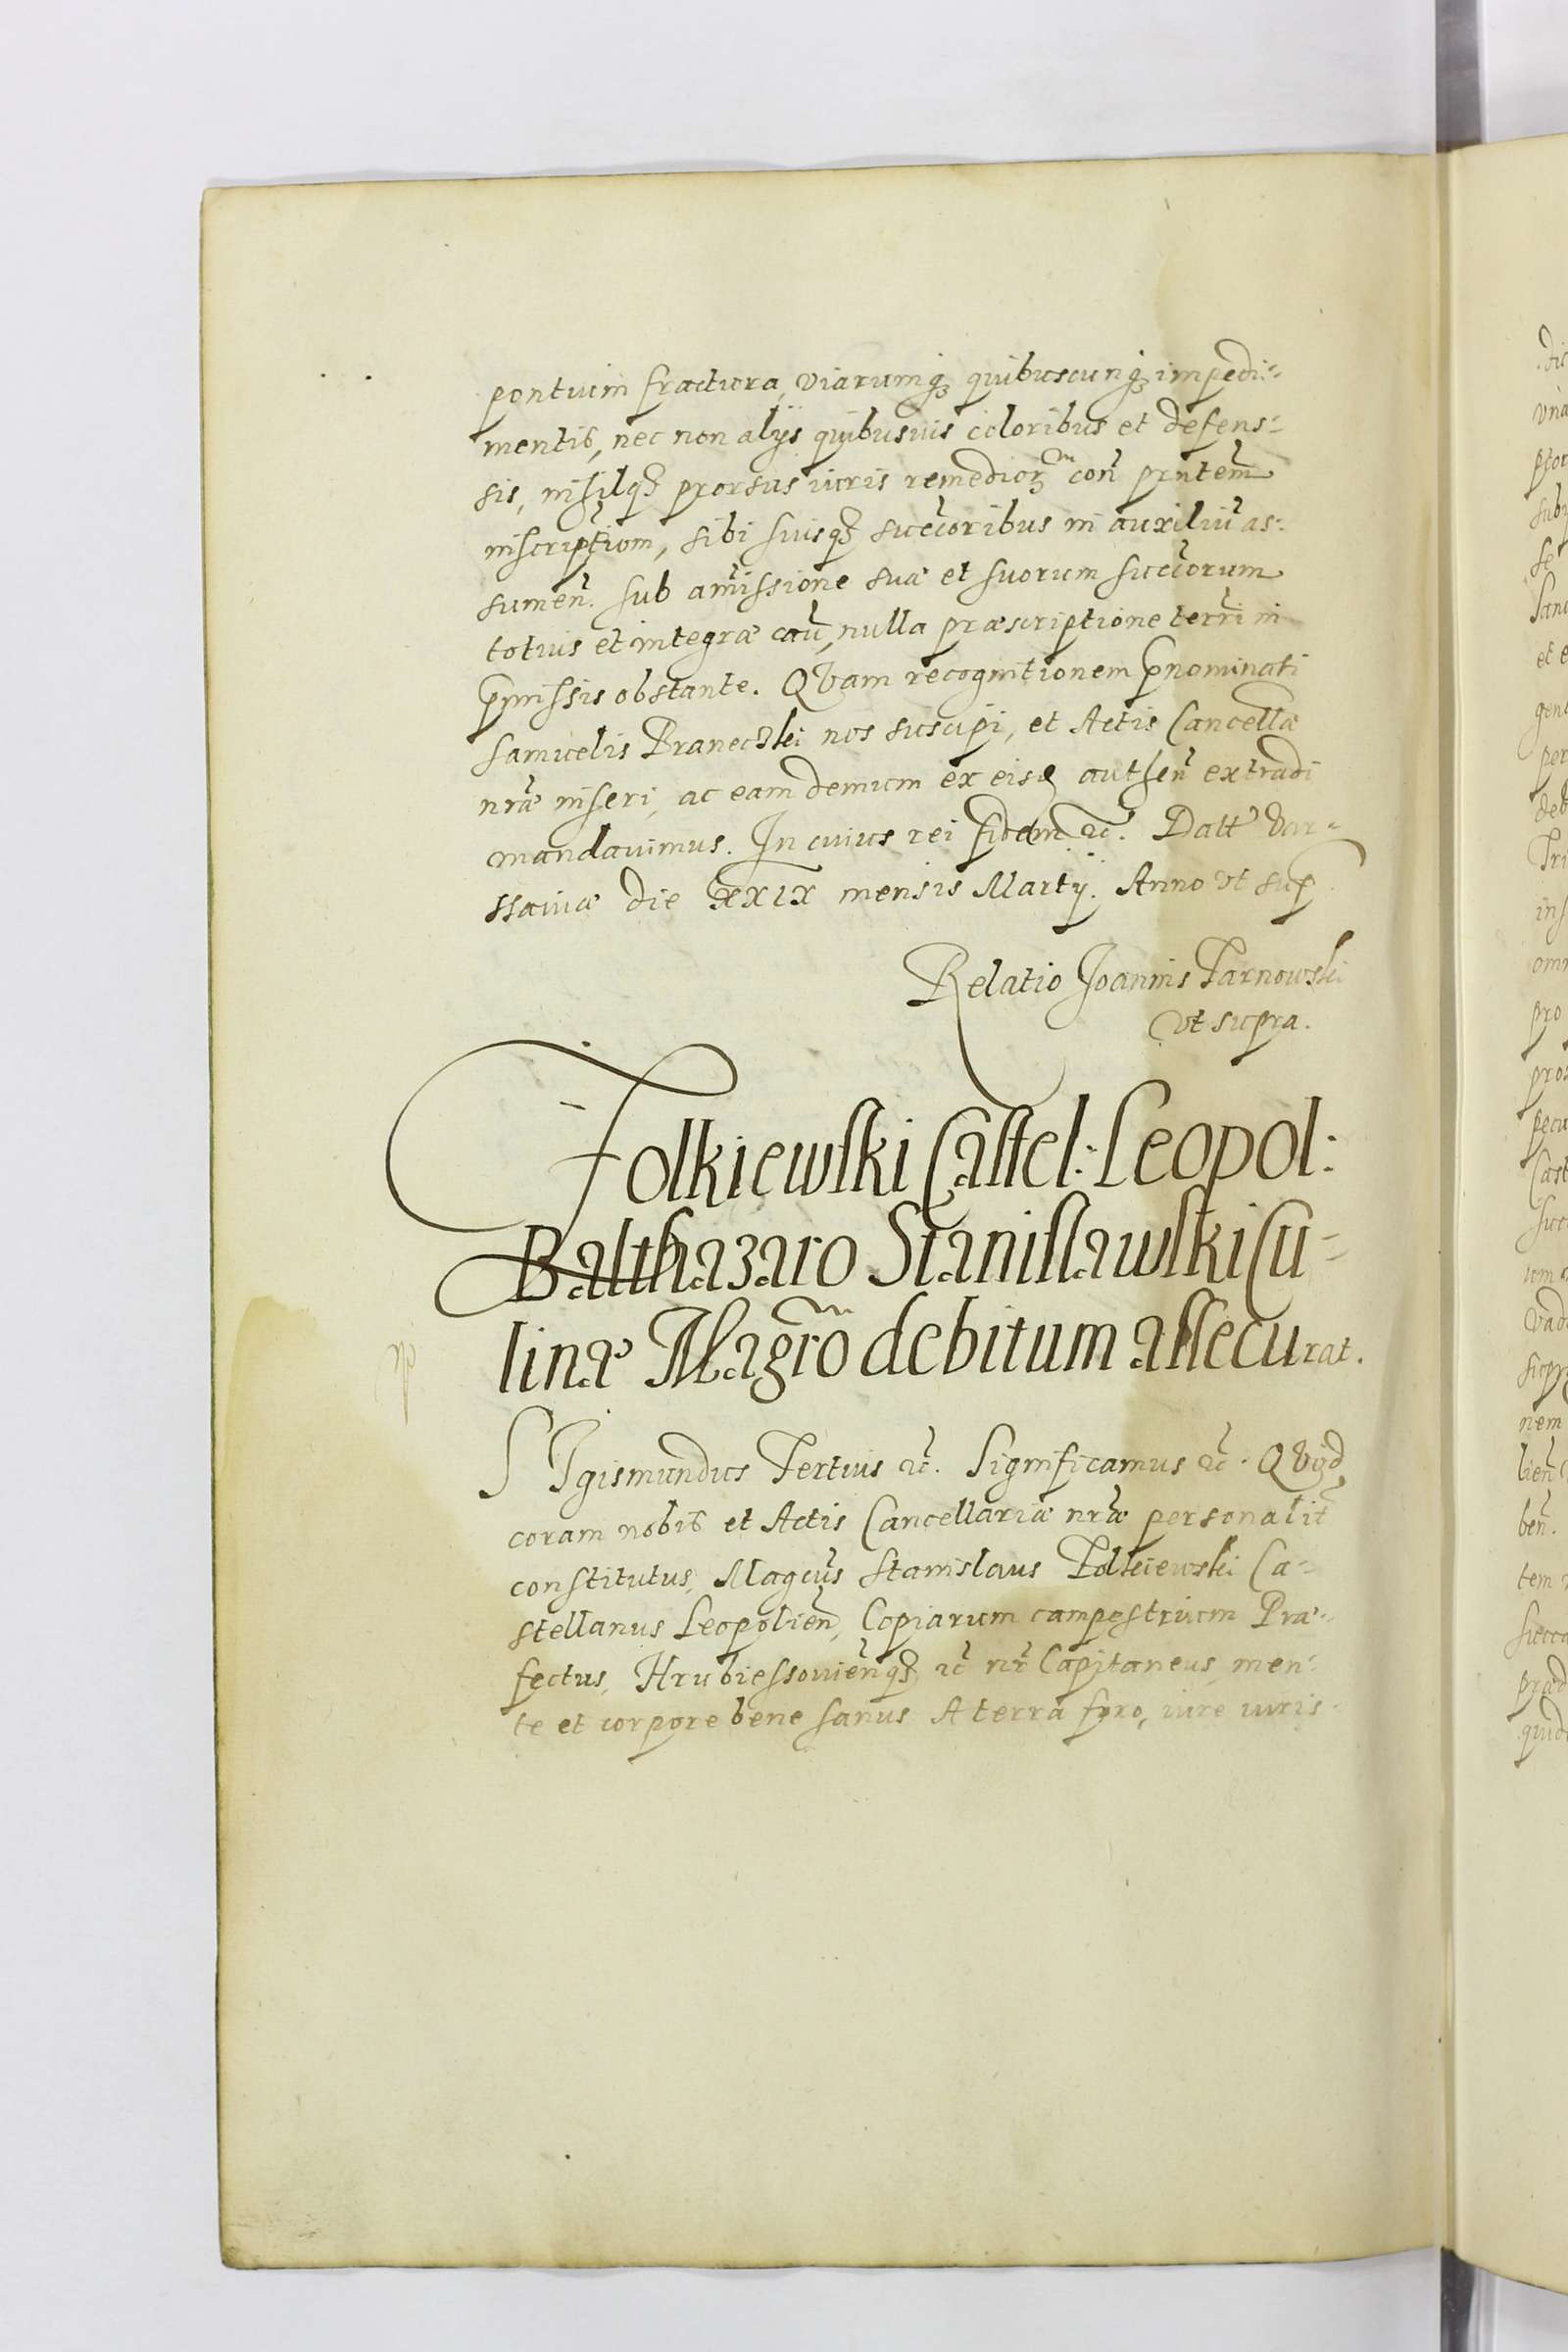 pontium fractura, viarumq₃ quibuscunq₃ impedi-
mentis, nec non alijs quibusuis coloribus et defens-
sis, nihilq₃ prorsus iuris remedior̃ con̄ prntem̄
inscriptiom, sibi suisq₃ succ̄oribus in auxiliū as-
sumen̄. sub am̄issione suæ et suorum succ̄orum
totius et integræ cau̅, nulla præscriptione terr̄i in
p̄missis obstante. QVam recognitionem p̄nominati
Samuelis Braneczki nos suscipi, et Actis Cancellæ
nr̄æ inseri, ac eam demum ex eisd authen̄ extradi
mandauimus. In cuius rei fidem ꝛc̄. Datt Var-
ssauiæ die XXIX mensis Martij. Anno vt sup̄.
Relatio Joannis Tarnowski
vt supra.
Żolkiewski Castel: Leopol:
Balthazaro Stanislawski Cu-
linæ Magr̄o debitum assecurat.
SIgismundus Tertius ꝛc̄. Significamus ꝛc̄. QVod
coram nobis et Actis Cancellariæ nr̄æ personalit̄
constitutus, Magcūs Stanislaus Żolkiewski Ca-
stellanus Leopolien̄, Copiarum campestrium Præ-
fectus, Hrubiessouien̄q₃ ꝛc̄ nr̄ Capitaneus, men-
te et corpore bene sanus A terra foro, iure iuris-